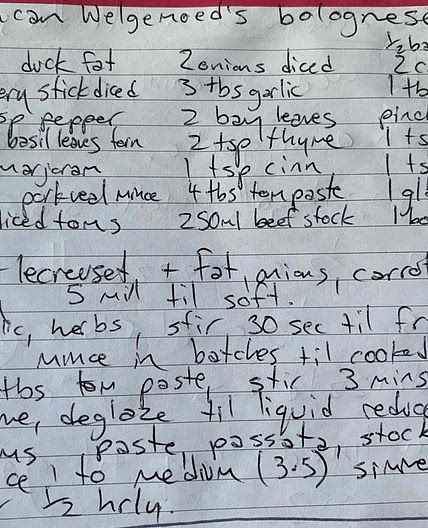 can Welgemoed's bolognese
½ ba
duck fat 2 onions diced 2 c
ery stick diced 3 tbs garlic 1 tb
sp pepper 2 bay leaves pinc
basil leaves torn 2 tsp thyme 1 ts
marjoram 1 tsp cinn 1 ts
pork veal mince 4 tbs tom paste 1 gl
iced toms 250ml beef stock 1 bo
lecreuset, + fat, onions, carrot
5 min til soft.
lic, herbs, stir 30 sec til fr
mince in batches til cooked
tbs tom paste, stir 3 mins
ne, deglaze til liquid reduce
ms paste, passata, stock
ce 1 to medium (3.5) simme
½ hrly.